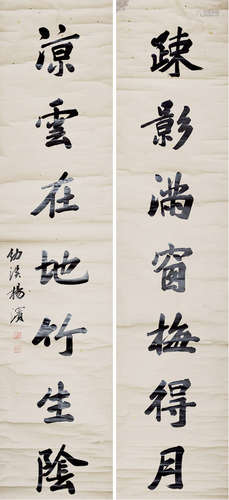 疎影滿窗梅得月
涼雲在地竹生陰
幼溪楊濱